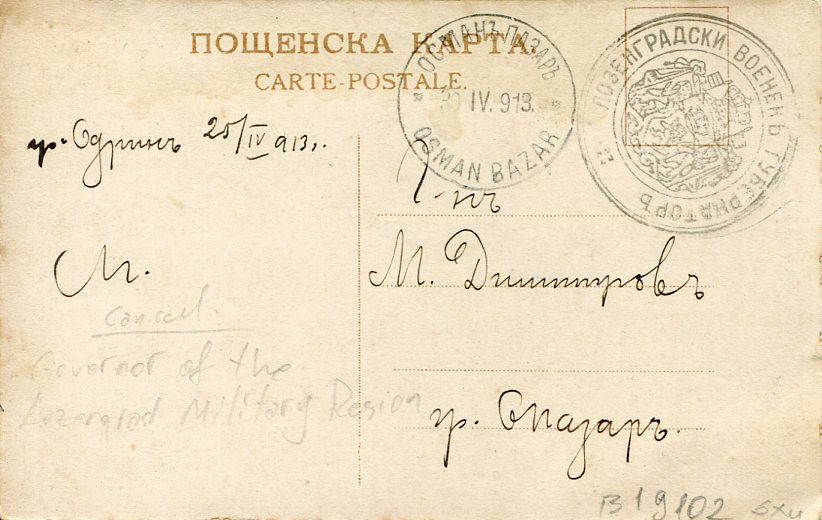 ПОЩЕНСКА КАРТА.
CARTE-POSTALE.
ОСМАНЪ-ПАЗАРЪ
IV. 913.
OSMAN BAZAR
ЛОЗЕНГРАДСКИ ВОЕНЕНЪ ГУБЕРНАТОРЪ
гр. Одринъ 25/IV 913.
Г-нъ
М. Димитровъ
гр. Опазаръ.
М.
Cancel.
Governor of the
Lozengrad Military Region
B19102